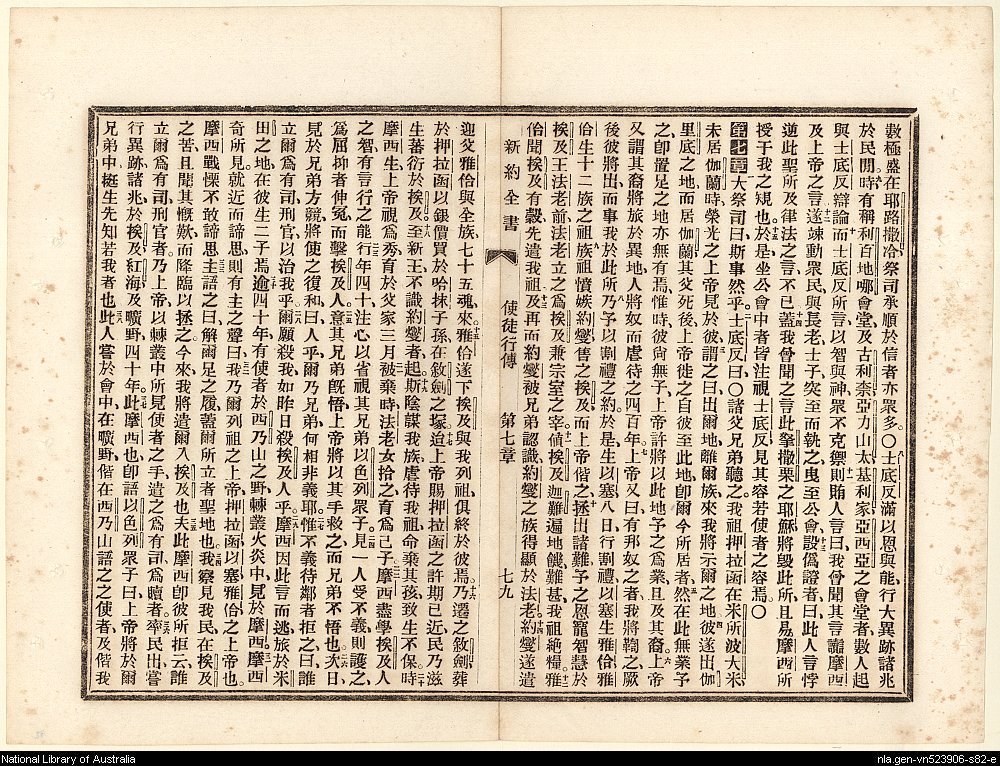 數極盛在耶路撒冷祭司承順於信者亦眾多。〇士底反滿以恩與能行大異跡諸兆
於民間時有稱利百地哪會堂及古利柰亞力山太基利家亞西亞之會堂者數人起
與士底反辯論而士底反所言以智與神眾不克禦則賄人言曰我曾聞其言讟摩西
及上帝之言遂竦動眾民與長老士子突至而執之曳至公會設偽證者曰此人言悖
逆此聖所及律法之言不已蓋我曾聞之言此拏撒栗之耶穌將毀此所且易摩西所
授于我之規也於是坐公會中者皆注視士底反見其容若使者之容焉〇
第七章大祭司曰斯事然乎士底反曰〇諸父兄弟聽之我祖押拉函在米所波大米
未居伽蘭時榮光之上帝見於彼謂之曰出爾地離爾族來我將示爾之地彼遂出伽
里底之地而居伽蘭其父死後上帝徙之自彼至此地卽爾今所居者然在此無業予
之卽置足之地亦無有焉惟時彼尚無子上帝許將以此地予之為業且及其裔上帝
又謂其裔將旅於異地人將奴而虐待之四百年上帝又曰有邦奴之者我將鞫之厥
後彼將出而事我於此所乃予以割禮之約於是生以塞八日行割禮以塞生雅佮雅
佮生十二族之祖族祖憤嫉約爕售之於埃及而上帝偕之拯出諸難予之恩寵智慧於
埃及王法老前法老立之為埃及兼宗室之宰埃及迦難遍地饑難甚我祖絕糧雅
佮聞埃及有穀先遣我祖及再而約爕被兄弟認識約爕之族得顯於法老約爕遂遣
新約全書 使徒行傳 第七章 七九
迎父雅佮與全族七十五魂來雅佮遂下埃及與我列祖俱終於彼焉乃遷之敘劍葬
於押拉函以銀價買於哈抹子孫在敘劍之塚迨上帝賜押拉函之許期已近民乃滋
生蕃衍於埃及至新王不識約爕者起斯陰謀我族虐待我祖命棄其孩致生不保時
摩西生上帝視為秀育於父家三月被棄時法老女拾之育為己子摩西盡學埃及人
之智有言行之能行年四十注心以省視其兄弟以色列眾子見一人受不義則護之
為屈抑者伸冤而擊埃及人意其兄弟旣悟上帝將以其手救之而兄弟不悟也次日
見於兄弟方競將使之復和曰人乎爾乃兄弟何相非義耶惟不義待鄰者拒之曰誰
立爾為有司刑官以治我乎爾願殺我如昨日殺埃及人乎摩西因此言而逃旅於米
田之地在彼生二子焉逾四十年有使者於西乃山之野棘叢火炎中見於摩西摩西
奇所見就近而諦思則有主之聲曰我乃爾列祖之上帝押拉函以塞雅佮之上帝也
摩西戰慄不敢諦思主語之曰解爾足之履蓋爾所立者聖地也我察見我民在埃及
之苦且聞其慨歎而降臨以拯之今來我將遣爾入埃及也夫此摩西卽彼所拒云誰
立爾為有司刑官者乃上帝以棘叢中所見使者之手遣之為有司為贖者率民出嘗
行異跡諸兆於埃及紅海及曠野四十年此摩西也卽語以色列眾子曰上帝將於爾
兄弟中挺生先知若我者也此人嘗於會中在曠野偕在西乃山語之之使者及偕我
National Library of Australia
nla.gen-vn523906-s82-e